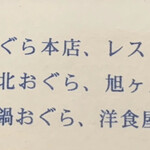 ぐら本店、レス
北おぐら、旭ヶ
鍋おぐら、洋食屋